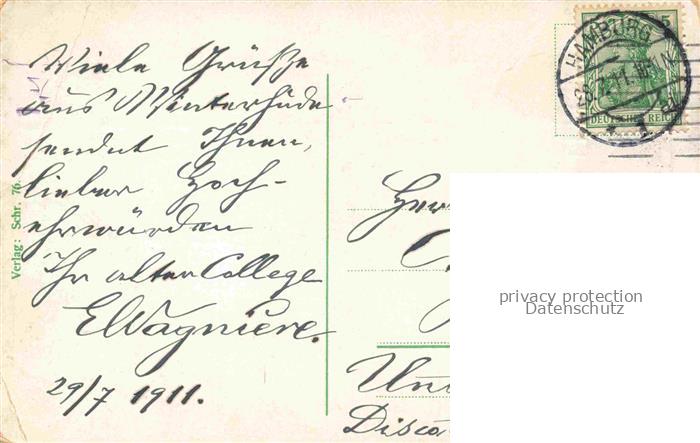 Viele Grüße
aus Winterhude
sendet Ihnen,
lieber Hoch-
ehrwürden
Ihr alter College
EWagniere.
29/7 1911.
Verlag: Schr. 76.
HAMBURG
29.7.11.
1
5
DEUTSCHES REICH
Her
Disco
privacy protection
Datenschutz